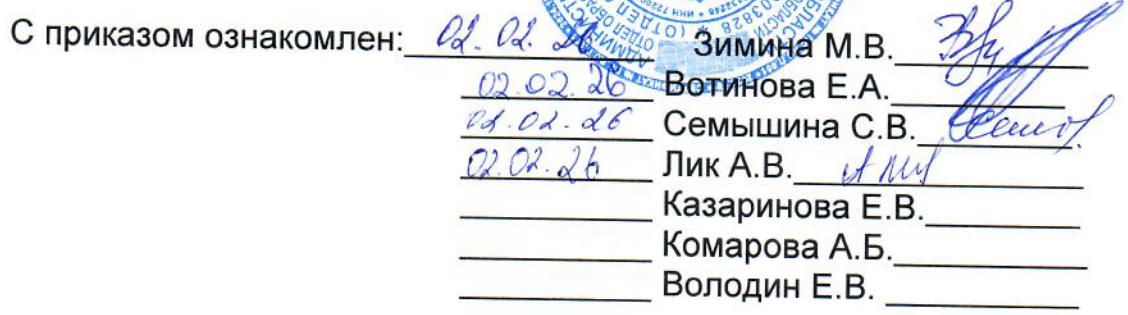 ИНН 722
03828
(ОТДЕЛ
С приказом ознакомлен: 02.02.26 Зимина М.В.
02.02.26 Вотинова Е.А.
02.02.26 Семышина С.В.
02.02.26 Лик А.В.
Казаринова Е.В.
Комарова А.Б.
Володин Е.В.